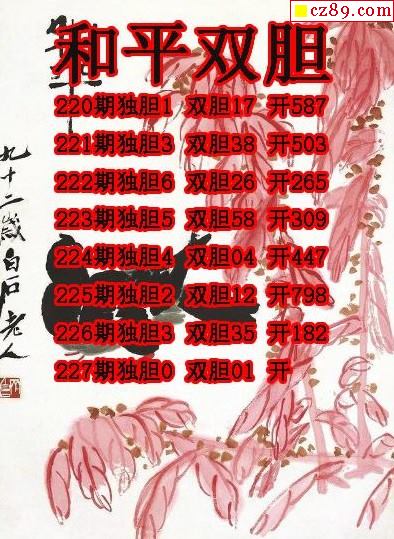 cz89.com
和平双胆
220期独胆1 双胆17 开587
221期独胆3 双胆38 开503
222期独胆6 双胆26 开265
223期独胆5 双胆58 开309
224期独胆4 双胆04 开447
225期独胆2 双胆12 开798
226期独胆3 双胆35 开182
227期独胆0 双胆01 开
九十二岁白石老人